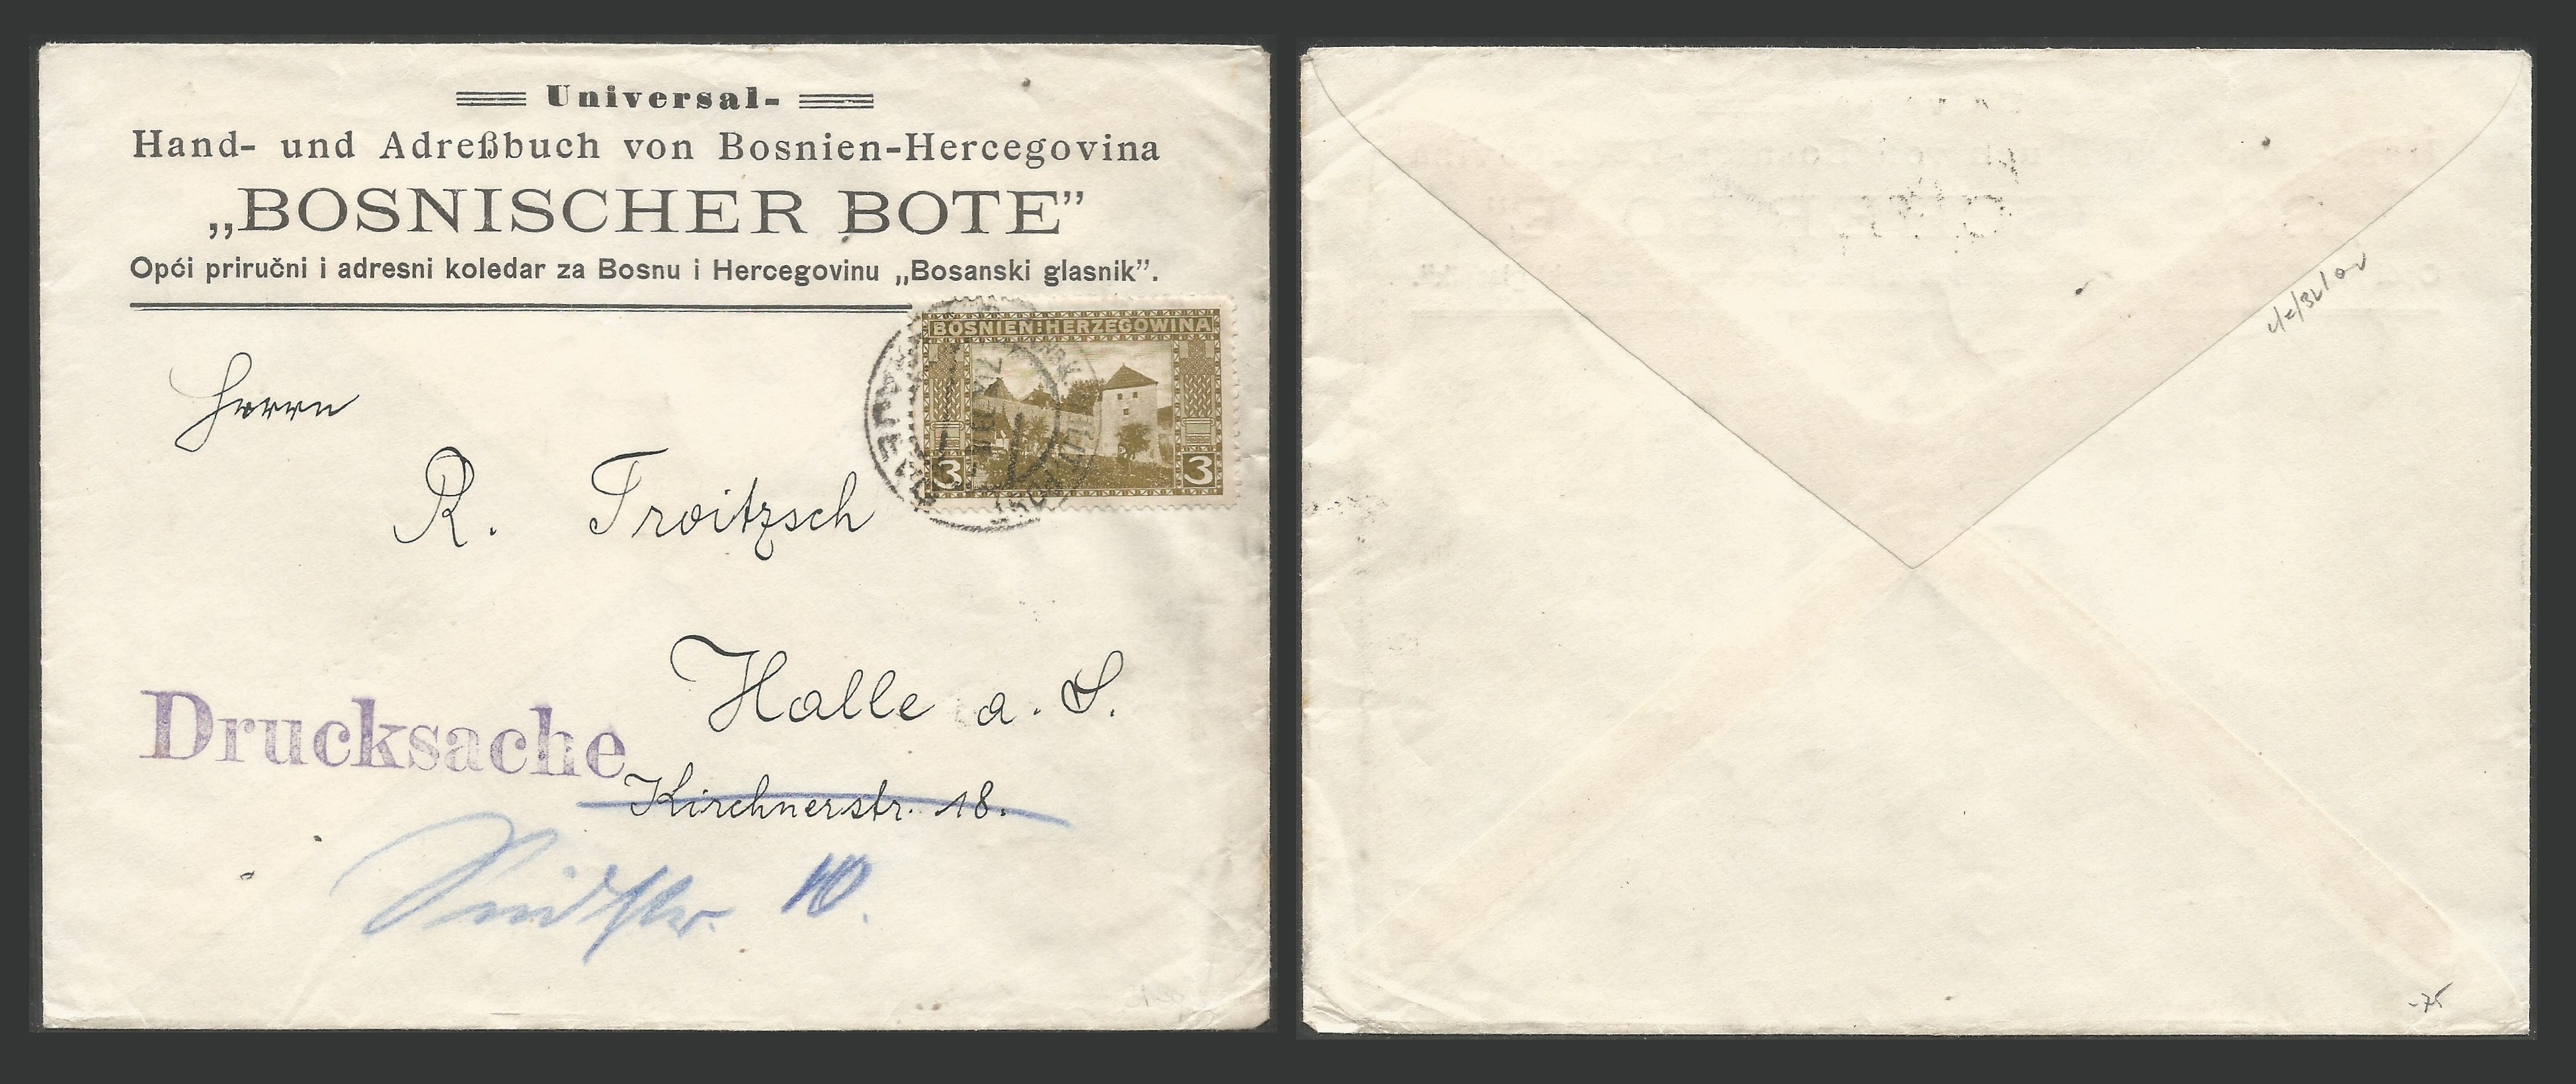 Universal-
Hand- und Adreßbuch von Bosnien-Hercegovina
„BOSNISCHER BOTE”
Opći priručni i adresni koledar za Bosnu i Hercegovinu „Bosanski glasnik”.
BOSNIEN:HERZEGOWINA
3 3
Herrn
R. Troitzsch
Halle a. S.
Drucksache
Kirchnerstr. 18.
10.